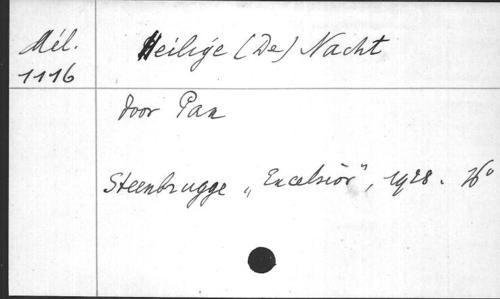 Mél.
1116
Heilige (De) Nacht
door Pan
Steenbrugge „Excelsior", 1928.